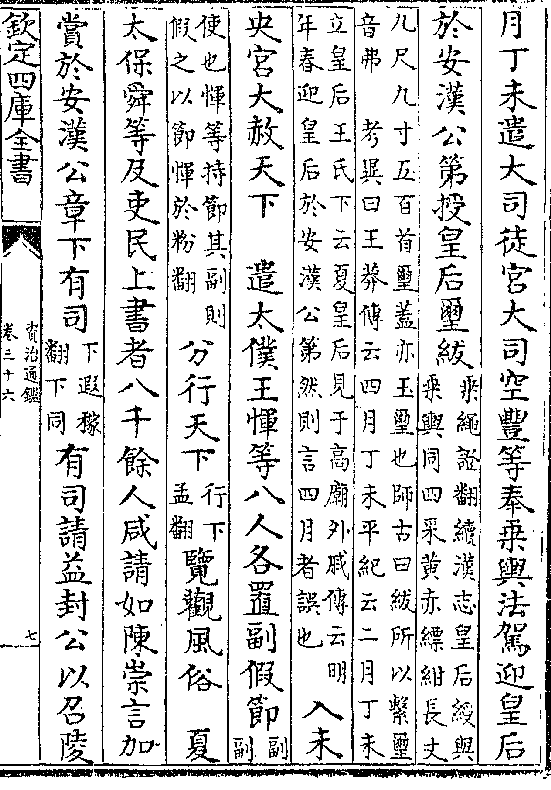 月丁未遣大司徒宫大司空豐等奉乗輿法駕迎皇后
於安漢公第授皇后璽紱
乗繩證翻續漢志皇后綬與
乗輿同四采黄赤縹紺長丈
九尺九寸五百首璽蓋亦玉璽也師古曰紱所以繫璽
音弗　考異曰王莽傳云四月丁未平紀云二月丁未
立皇后王氏下云夏皇后見于高廟外戚傳云明
年春迎皇后於安漢公第然則言四月者誤也
入未
央宫大赦天下　遣太僕王惲等八人各置副假節
副
副
使也惲等持節其副則
假之以節惲於粉翻
分行天下
行下
孟翻
覽觀風俗　夏
太保舜等及吏民上書者八千餘人咸請如陳崇言加
賞於安漢公章下有司
下遐稼
翻下同
有司請益封公以召陵
欽定四庫全書
資治通鑑
卷三十六
七